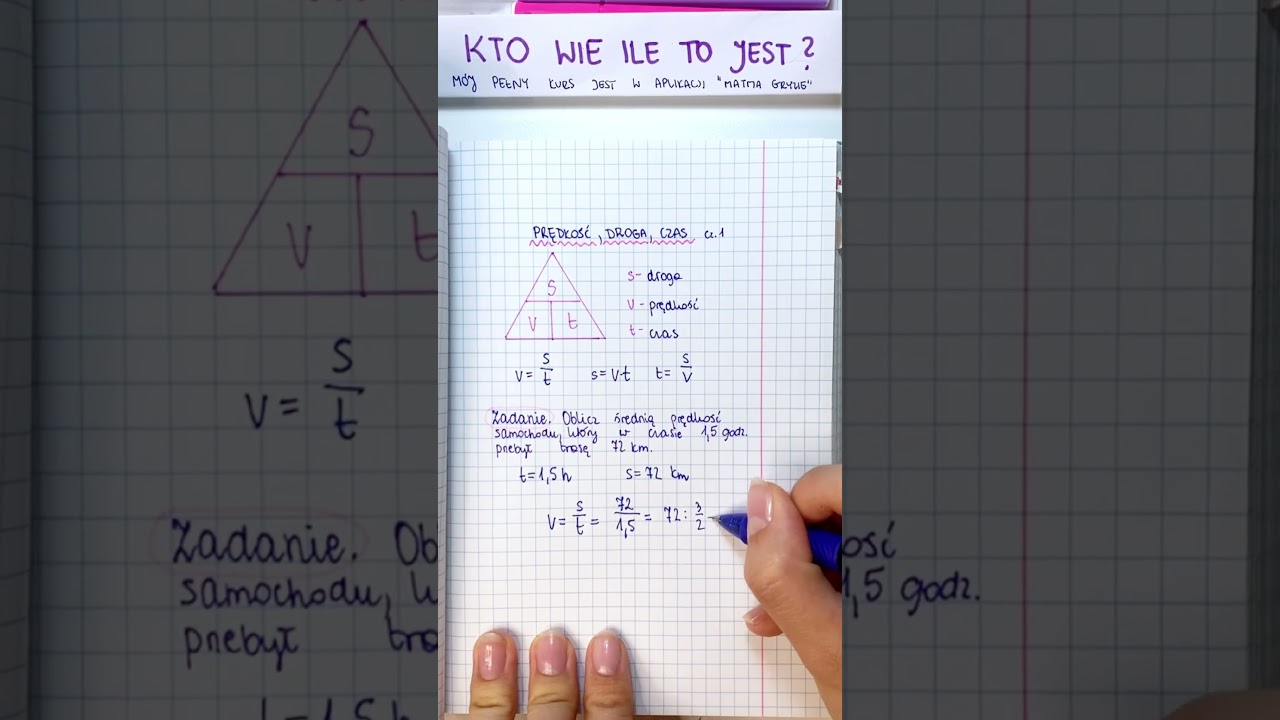 KTO WIE ILE TO JEST?
MÓJ PEŁNY KURS JEST W APLIKACJI "MATMA GRYZIE"
PRĘDKOŚĆ, DROGA, CZAS cz.1
S
V t
s- droga
v- prędkość
t- czas
v = s/t s = v·t t = s/v
Zadanie. Oblicz średnią prędkość
samochodu, który w czasie 1,5 godz.
przebył trasę 72 km.
t=1,5h s=72 km
v = s/t = 72/1,5 = 72 : 3/2
S
V t
v = s/t
Zadanie. Ob
samochodu,
przebył
ość
1,5 godz.
t=1,5h